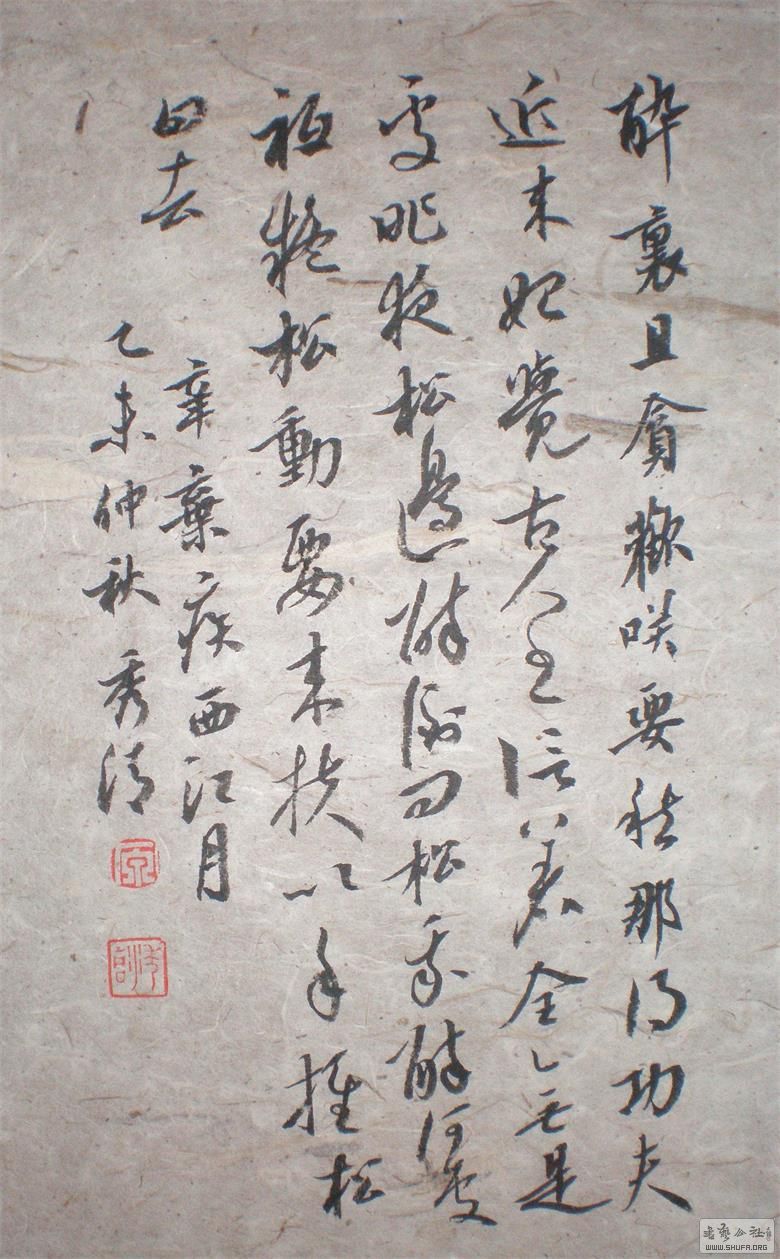 醉裏且貪歡咲要愁那得功夫
近来始覺古人書信著全無是
處昨夜松邊醉倒問松我醉何
祗疑松動要来扶以手推松
曰去
辛棄疾西江月
乙未仲秋秀清
書藝公社
WWW.SHUFA.ORG